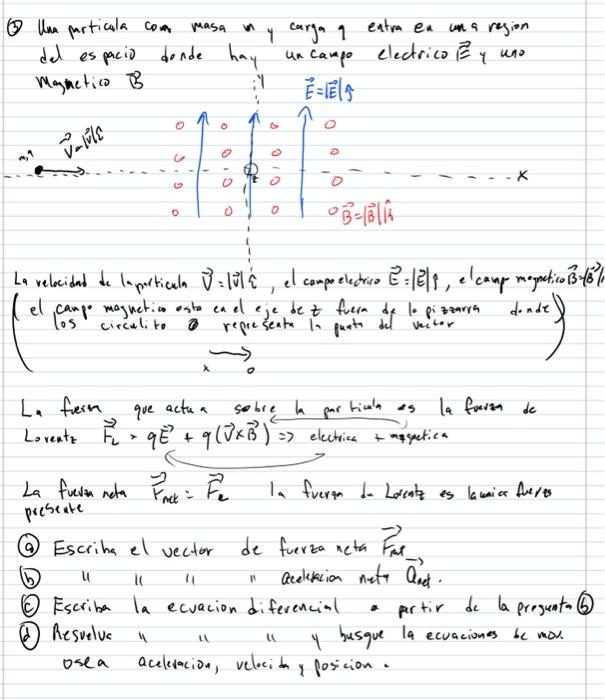 ③ Una particula com masa m y carga q entra en una region
del espacio donde hay un campo electrico E⃗ y uno
magnetico B⃗
y
E⃗=|E⃗|ĵ
m,q V⃗=|V⃗|î
z
x
B⃗=|B⃗|k̂
La velocidad de la particula V⃗=|V⃗|î, el campo electrico E⃗=|E⃗|ĵ, el camp magnetico B⃗=|B⃗|
(el campo magnetico esta en el eje de z fuera de la pizzarra donde
los circulito o representa la punta del vector)
x o
La fuerza que actua sobre la particula es la fuerza de
Lorentz F⃗L = qE⃗ + q(V⃗xB⃗) => electrica + magnetica
La fuerza neta F⃗net = F⃗e la fuerza de Lorentz es la unica fuerza
presente
ⓐ Escriba el vector de fuerza neta F⃗net
ⓑ " " " " aceleracion neta a⃗net.
ⓒ Escriba la ecuacion diferencial a partir de la pregunta ⓑ
ⓓ Resuelva " " " y busque la ecuaciones de mov.
osea aceleracion, velocidad y posicion.